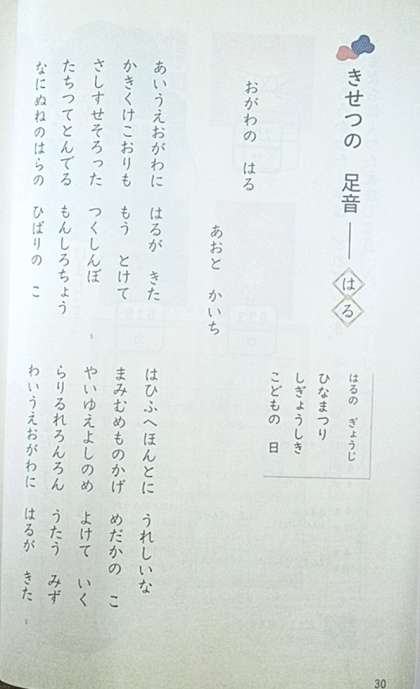 きせつの　足音――はる
はるの　ぎょうじ
ひなまつり
しぎょうしき
こどもの　日
おがわの　はる
あおと　かいち
あいうえおがわに　はるが　きた
かきくけこおりも　もう　とけて
さしすせそろった　つくしんぼ
たちつてとんでる　もんしろちょう
なにぬねのはらの　ひばりの　こ
はひふへほんとに　うれしいな
まみむめものかげ　めだかの　こ
やいゆえよしのめ　よけて　いく
らりるれろんろん　うたう　みず
わいうえおがわに　はるが　きた
30